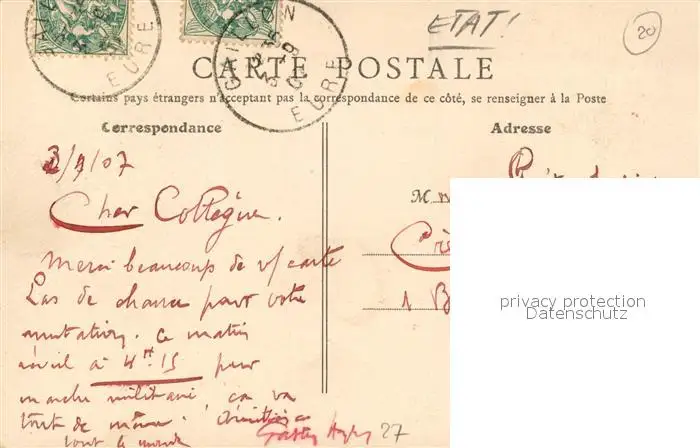 GAILLON
EURE
GAILLON
EURE
ETAT!
20
CARTE POSTALE
Certains pays étrangers n'acceptant pas la correspondance de ce côté, se renseigner à la Poste
Correspondance
Adresse
3/9/07
M
Cher Collègue.
Merci beaucoup de v/ carte
Pas de chance pour votre
1 B
mutation. Ce matin
réveil à 4H15 pour
marche militaire, ça va
tout de même.
tout le monde
27
privacy protection
Datenschutz